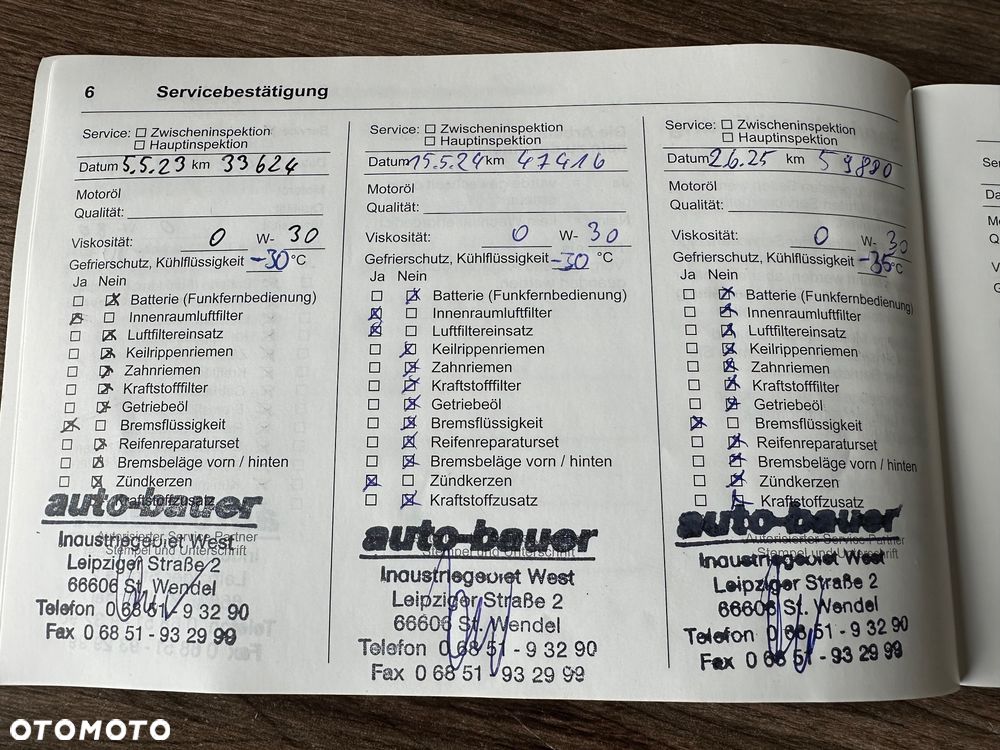 6 Servicebestätigung
Service: Zwischeninspektion
Hauptinspektion
Datum 5.5.23 km 33624
Motoröl
Qualität:
Viskosität: 0 W- 30
Gefrierschutz, Kühlflüssigkeit -30 °C
Ja Nein
Batterie (Funkfernbedienung)
Innenraumluftfilter
Luftfiltereinsatz
Keilrippenriemen
Zahnriemen
Kraftstofffilter
Getriebeöl
Bremsflüssigkeit
Reifenreparaturset
Bremsbeläge vorn / hinten
Zündkerzen
Kraftstoffzusatz
auto-bauer
Autorisierter Service Partner
Industriegebiet West
Stempel und Unterschrift
Leipziger Straße 2
66606 St. Wendel
Telefon 0 68 51 - 9 32 90
Fax 0 68 51 - 93 29 99
Service: Zwischeninspektion
Hauptinspektion
Datum 15.5.24 km 47416
Motoröl
Qualität:
Viskosität: 0 W- 30
Gefrierschutz, Kühlflüssigkeit -30 °C
Ja Nein
Batterie (Funkfernbedienung)
Innenraumluftfilter
Luftfiltereinsatz
Keilrippenriemen
Zahnriemen
Kraftstofffilter
Getriebeöl
Bremsflüssigkeit
Reifenreparaturset
Bremsbeläge vorn / hinten
Zündkerzen
Kraftstoffzusatz
auto-bauer
Stempel und Unterschrift
Industriegebiet West
Leipziger Straße 2
66606 St. Wendel
Telefon 0 68 51 - 9 32 90
Fax 0 68 51 - 93 29 99
Service: Zwischeninspektion
Hauptinspektion
Datum 2.6.25 km 59880
Motoröl
Qualität:
Viskosität: 0 W- 30
Gefrierschutz, Kühlflüssigkeit -35 °C
Ja Nein
Batterie (Funkfernbedienung)
Innenraumluftfilter
Luftfiltereinsatz
Keilrippenriemen
Zahnriemen
Kraftstofffilter
Getriebeöl
Bremsflüssigkeit
Reifenreparaturset
Bremsbeläge vorn / hinten
Zündkerzen
Kraftstoffzusatz
auto-bauer
Autorisierter Service Partner
Stempel und Unterschrift
Industriegebiet West
Leipziger Straße 2
66606 St. Wendel
Telefon 0 68 51 - 9 32 90
Fax 0 68 51 - 93 29 99
OTOMOTO